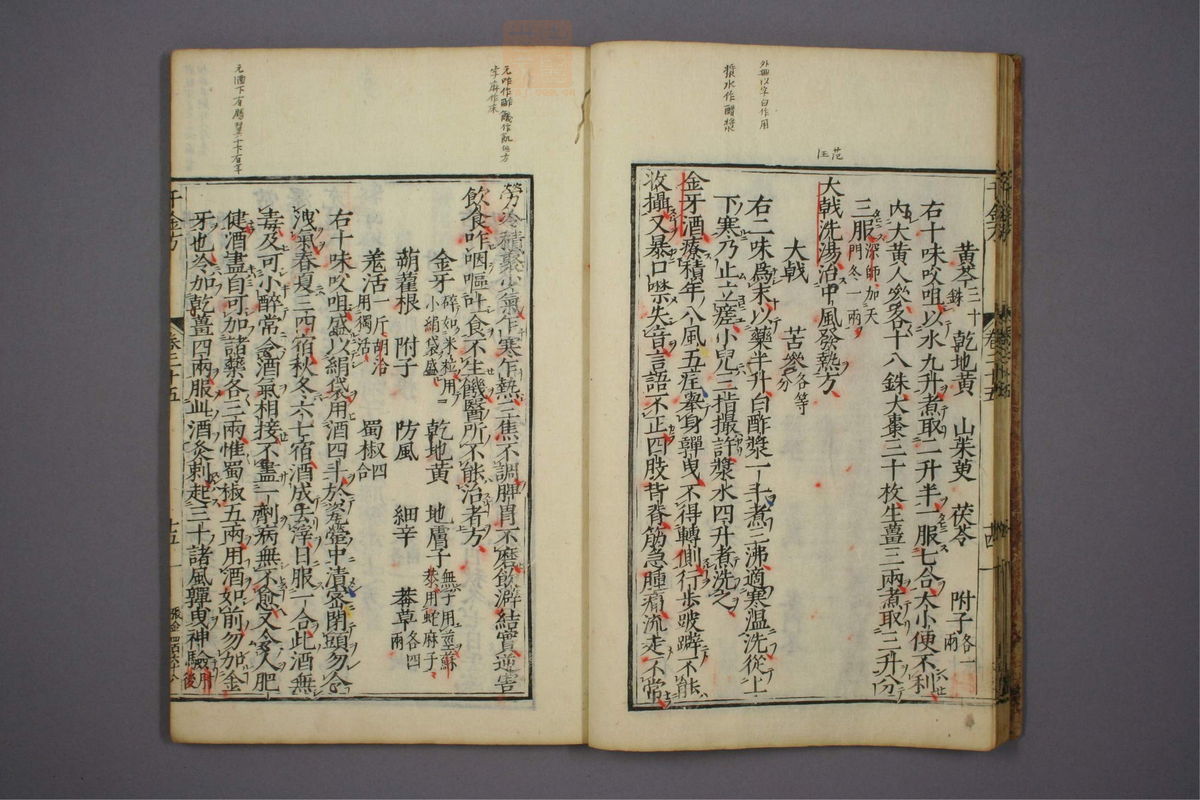 黄芩三十銖 乾地黄 山茱萸 茯苓 附子各一兩
右十味㕮咀以水九升煮取二升半一服七合大小便不利
内大黄人參各十八銖大棗三十枚生薑三兩煮取三升分
三服深師加天門冬一兩
大戟洗湯治中風發熱方
大戟 苦參各等分
右二味爲末以藥半升白酢漿一斗煮三沸適寒温洗從上
下寒乃止立瘥小兒三指撮許漿水四升煮洗之
金牙酒療積年八風五疰舉身嚲曳不得轉側行步跛躃不能
收攝又暴口噤失音言語不正四肢背脊筋急腫痛流走不常
勞冷積聚少氣乍寒乍熱三焦不調脾胃不磨飲澼結實逆害
飲食咋咽嘔吐食不生饑醫所不能治者方
金牙碎如米粒用小絹袋盛 乾地黄 地膚子無子用莖蘇恭用蛇麻子
蒴藋根 附子 防風 細辛 莽草各四兩
羗活一斤胡洽用獨活 蜀椒四合
右十味㕮咀盛以絹袋用酒四斗於瓷甖中漬密閉頭勿令
洩氣春夏三四宿秋冬六七宿酒成去滓日服一合此酒無
毒及可小醉常令酒氣相接不盡一劑病無不愈又令人肥
健酒盡自可加諸藥各三兩惟蜀椒五兩用酒如前勿加金
牙也冷加乾薑四兩服此酒灸刺起三十諸風嚲曳神驗